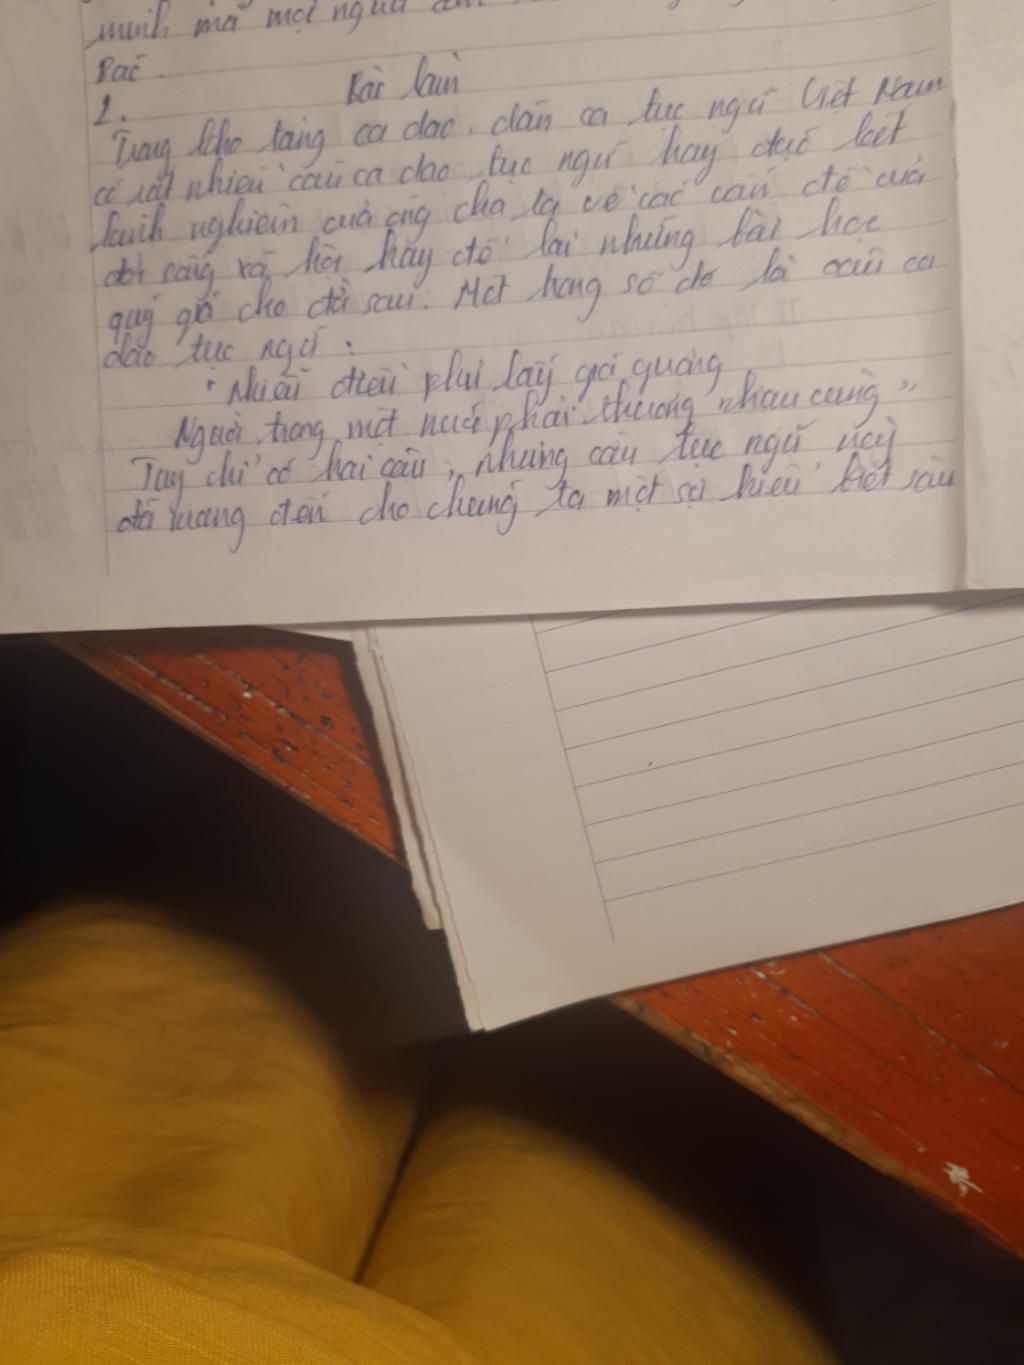 mình mà mọi người
Bác.
Bài làm
2.
Trong kho tàng ca dao, dân ca tục ngữ Việt Nam
có rất nhiều câu ca dao tục ngữ hay đúc kết
kinh nghiệm của ông cha ta về các vấn đề của
đời sống xã hội hay để lại những bài học
quý giá cho đời sau. Một trong số đó là câu ca
dao tục ngữ:
"Nhiễu điều phủ lấy giá gương
Người trong một nước phải thương nhau cùng"
Tuy chỉ có hai câu, nhưng câu tục ngữ này
đã mang đến cho chúng ta một sự hiểu biết sâu